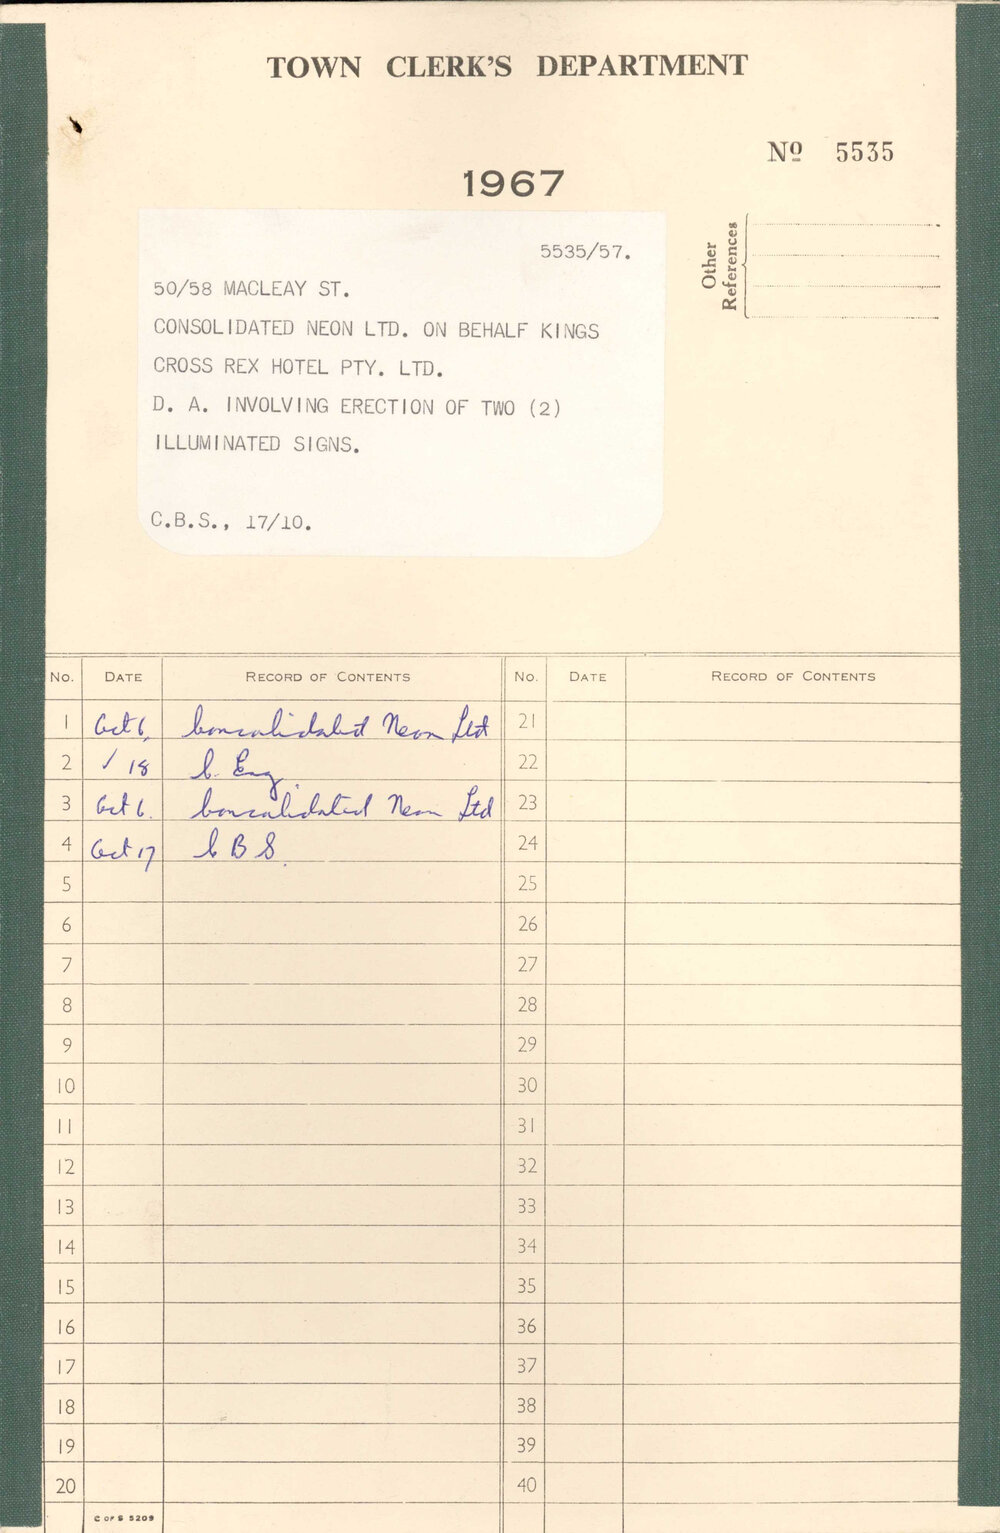 TOWN CLERK'S DEPARTMENT
Nº 5535
1967
Other References
5535/57.
50/58 MACLEAY ST.
CONSOLIDATED NEON LTD. ON BEHALF KINGS
CROSS REX HOTEL PTY. LTD.
D. A. INVOLVING ERECTION OF TWO (2)
ILLUMINATED SIGNS.
C.B.S., 17/10.
No. DATE RECORD OF CONTENTS No. DATE RECORD OF CONTENTS
1 Oct 6, Consolidated Neon Ltd 21
2 / 18 C. Eng. 22
3 Oct 6. Consolidated Neon Ltd 23
4 Oct 17 C B S. 24
5 25
6 26
7 27
8 28
9 29
10 30
11 31
12 32
13 33
14 34
15 35
16 36
17 37
18 38
19 39
20 40
C OF S 5209